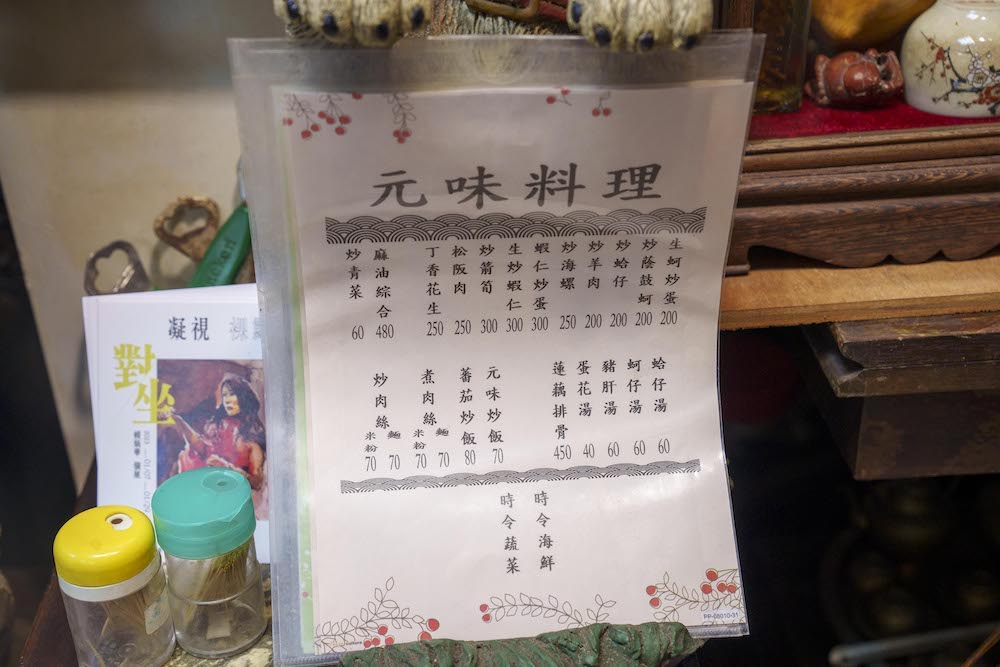 元味料理
生蚵炒蛋 200
炒蔭鼓蚵 200
炒蛤仔 200
炒羊肉 200
炒海螺 250
蝦仁炒蛋 300
生炒蝦仁 300
炒箭筍 300
松阪肉 250
丁香花生 250
麻油綜合 480
炒青菜 60
蛤仔湯 60
蚵仔湯 60
豬肝湯 60
蛋花湯 40
蓮藕排骨 450
元味炒飯 70
蕃茄炒飯 80
煮肉絲 麵 70 米粉 70
炒肉絲 麵 70 米粉 70
時令海鮮
時令蔬菜
PP-08010-31
凝視
對坐